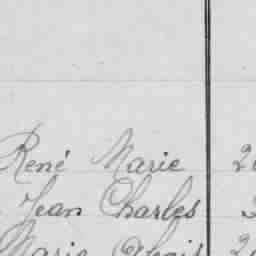 René Marie
Jean Charles
Marie